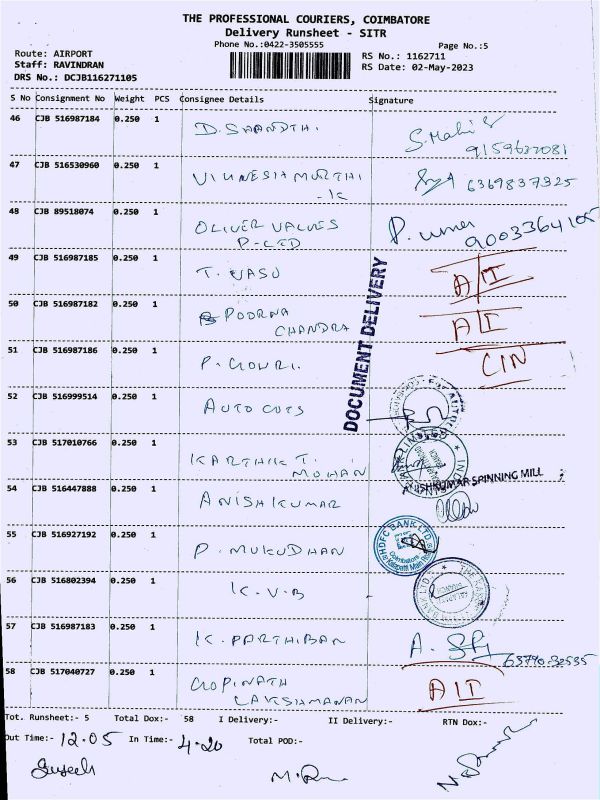 THE PROFESSIONAL COURIERS, COIMBATORE
Delivery Runsheet - SITR
Phone No.:0422-3505555 Page No.:5
Route: AIRPORT RS No.: 1162711
Staff: RAVINDRAN RS Date: 02-May-2023
DRS No.: DCJB116271105
S No Consignment No Weight PCS Consignee Details Signature
46 CJB 516987184 0.250 1 D. SHANDTHI.
9159637081
47 CJB 516530960 0.250 1 VIGNESH MURTHI 6369837325
- K
48 CJB 89518074 0.250 1 OLIVER VALVES P. umar
P-LTD 9003364105
49 CJB 516987185 0.250 1 T. VASU A/I
50 CJB 516987182 0.250 1 POORNA A/I
CHANDRA
51 CJB 516987186 0.250 1 P. GOWRI. C/N
DOCUMENT DELIVERY
52 CJB 516999514 0.250 1 AUTO CUTS
53 CJB 517010766 0.250 1 KARTHIK T.
MOHAN
54 CJB 516447888 0.250 1 ANISHKUMAR
ANISHKUMAR SPINNING MILL
55 CJB 516927192 0.250 1 P. MUKUDHAN HDFC BANK LTD
Coimbatore
56 CJB 516802394 0.250 1 K.V.B
57 CJB 516987183 0.250 1 K. PARTHIBAN
63790-32535
58 CJB 517040727 0.250 1 GOPINATH A/I
LAKSHMANAN
Tot. Runsheet:- 5 Total Dox:- 58 I Delivery:- II Delivery:- RTN Dox:-
Out Time:- 12.05 In Time:- 4.20 Total POD:-